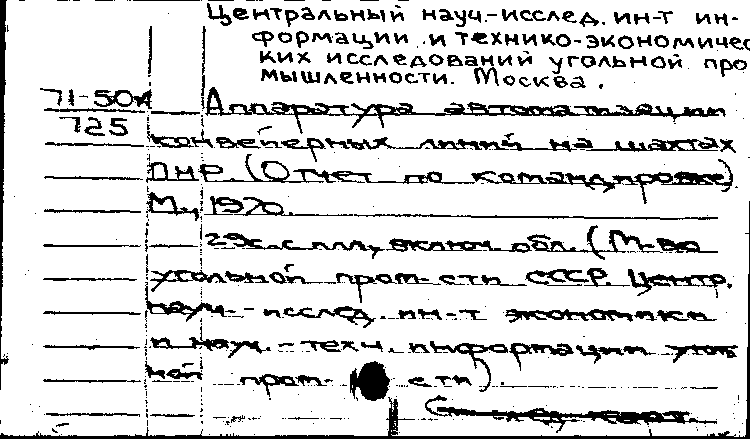 Центральный науч.-исслед. ин-т ин-
формации и технико-экономичес
ких исследований угольной про
мышленности. Москва.
71-50А
725
Аппаратура автоматизации
конвейерных линий на шахтах
ПНР. (Отчет по командировке)
М., 1970.
29с. с илл., включ. обл. (М-во
угольной пром-сти СССР. Центр.
науч.-исслед. ин-т экономики
и науч.-техн. информации уголь
ной пром-сти).
След. карт.